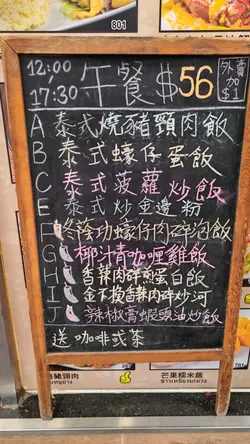 801
12:00,
17:30
午餐$56
外賣
加
$1
A 泰式燒豬頸肉飯
B 泰式蠔仔蛋飯
C 泰式菠蘿炒飯
E 泰式炒金邊粉
F 冬陰功蠔仔肉碎泡飯
G 椰汁青咖喱雞飯
H 香辣肉碎煎蛋白飯
I 金不換香辣肉碎炒河
J 辣椒膏蝦頭油炒飯
送 咖啡或茶
燒豬頸肉
芒果糯米飯